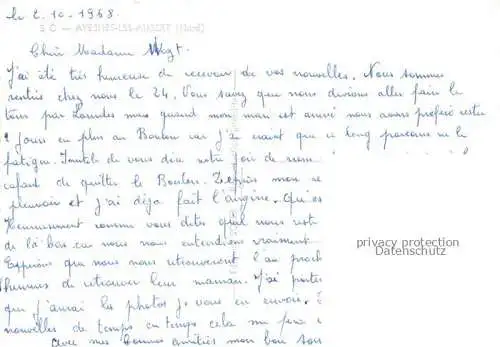 le 2. 10 - 1968.
S O - AVESNES-LES-AUBERT (Nord)
Chère Madame
J'ai été très heureuse de recevoir de vos nouvelles. Nous sommes
rentrés chez nous le 24. Vous savez que nous devions aller faire le
tour par Lourdes mais quand mon mari est arrivé nous avons préféré rester
jours en plus au Boulou car j'ai craint que ce long parcours ne le
fatigue. Inutile de vous dire notre joie de
cafard de quitter le Boulou. Depuis mon
pleuvoir et j'ai déjà fait l'angine. Qu'es
Heureusement comme vous dites qu'il nous rest
de là bas car nous nous entendions vraiment
Espérons que nous nous retrouverons l'an proch
heureux de retrouver leur maman. J'ai
que j'aurai les photos je vous en envoie.
nouvelles de temps en temps cela me fera
avec mes bonnes amitiés mon bon sou
privacy protection
Datenschutz